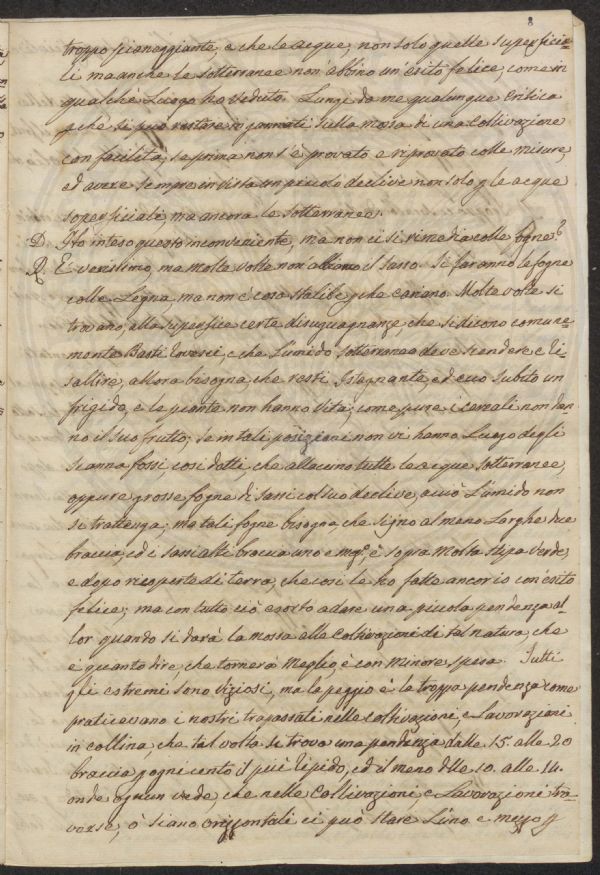 8
troppo pianeggiante, e che le acque, non solo quelle superficia=
li ma anche le sotterranee non' abbino un' esito felice, come in
qualche Luogo ho veduto. Lungi da me qualunque Critica
p che si può restare ingannati sulla mossa di una Coltivazione
con facilità, se prima non s' è provato e riprovato colle misure,
ed avere sempre in vista un piccolo declive non solo p le acque
superficiali, ma ancora le sotterranee.
D. Ho inteso questo inconveniente, ma non ci si rimedia colle fogne?
R. È verissimo, ma molte volte non' abbiamo il sasso. Si faranno le fogne
colle Legna, ma non è cosa stabile, p che cariano. Molte volte si
trovano, alla superfice certe disuguagnanze, che si dicono comune=
mente Basti rovesci, e che L'umido sotterraneo deve scendere e ri=
saltire, allora bisogna, che resti stagnante, ed ecco subito un
frigido, e le piante non hanno vita, come pure i cereali non dan=
no il suo frutto; se in tali posizioni non vi hanno Luogo degli
scanna fossi, così datti, che allacino tutte le acque sotterranee,
oppure grosse fogne di sassi col suo declive, acciò L'umido non
si trattenga; ma tali fogne bisogna, che siano al meno Larghe due
braccia, ed i sassi alti braccia uno e mez.º, e sopra molta stipa verde,
e dopo ricoperte di terra, che così le ho fatte ancor io con' esito
felice; ma con tutto ciò esorto a dare una piccola pendenza al=
lor quando si darà la mossa alle Coltivazioni di tal natura, che
è quanto dire, che tornerà Meglio, e con minore spesa. Tutti
gli estremi sono viziosi, ma la peggio è la troppa pendenza come
praticavano i nostri trapassati nelle coltivazioni, e Lavorazioni
in collina, che tal volta si trova una pendenza dalle 15. alle 20
braccia p ogni cento il più ripido, ed il meno dlle 10. alle 14.
onde ognun vede, che nelle Coltivazioni, e Lavorazioni tra=
verse, ò siano orizzontali ci può stare L'uno e mezzo p